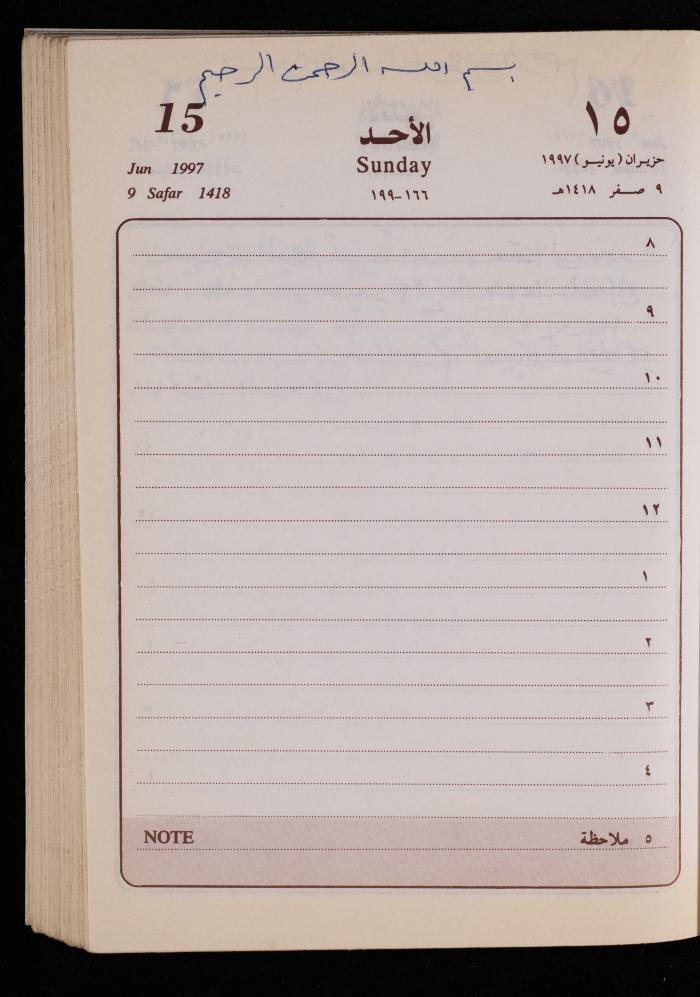 بسم الله الرحمن الرحيم
15 ١٥
الأحد
Jun 1997 Sunday حزيران (يونيو) ١٩٩٧
9 Safar 1418 ١٦٦-١٩٩ ٩ صفر ١٤١٨هـ
٨
٩
١٠
١١
١٢
١
٢
٣
٤
NOTE ٥ ملاحظة